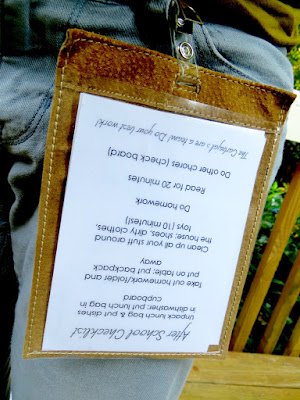 After School Checklist
Unpack lunch bag & put dishes
in dishwasher; put lunch bag in
cupboard
Take out homework/folder and
put on table; put backpack
away
Clean up all your stuff around
the house: shoes, dirty clothes,
toys (10 minutes!)
Do homework
Read for 20 minutes
Do other chores (check board)
The Cartagal's are a team! Do your best work!